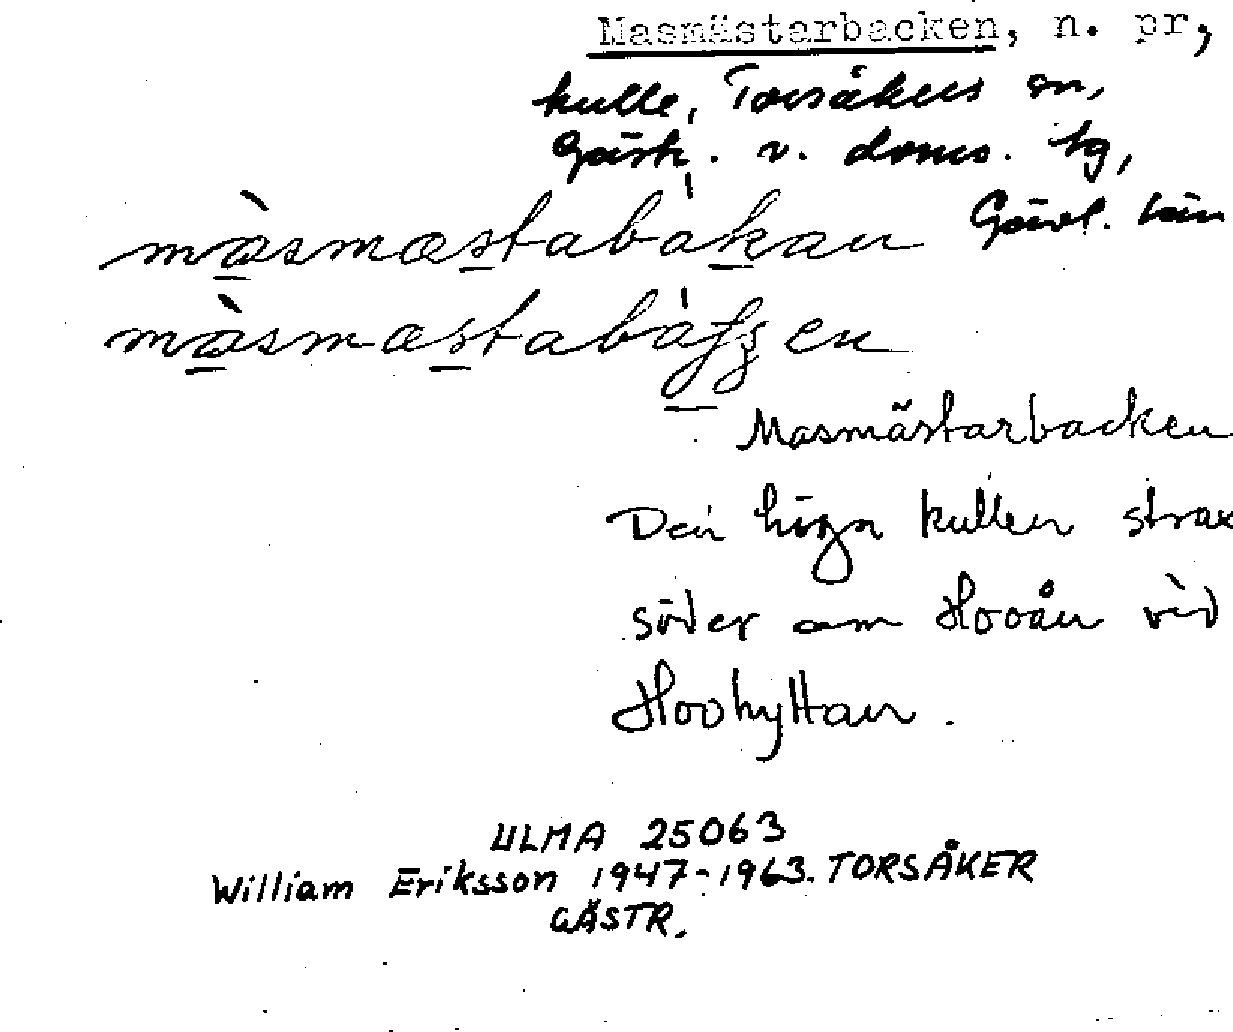 Masmästarbacken, n. pr,
kulle, Torsåkers sn,
Gästr. v. doms. tg,
Gävl. län
màsmæstabákan
màsmæstabáʃʒen
Masmästarbacken
Den höga kullen strax
söder om Hooån vid
Hoohyttan.
ULMA 25063
William Eriksson 1947-1963. TORSÅKER
GÄSTR.